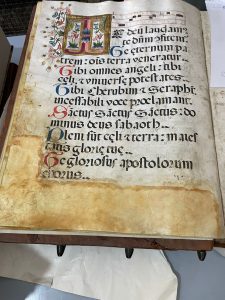 T e deū laudam⁹
te dn̄m ɔfitem̄
Te eternum pa
trem: oīs terra veneratur
Tibi omnes angeli: tibi
celi, et vniuerse potestates
Tibi Cherubim et Seraphī
incessabili voce proclamant
Sāctus Sāctus Sāctus: do
minus deus sabaoth
Pleni sūt celi et terra: maies
tatis glorie tue
Te gloriosus apostolorum
chorus